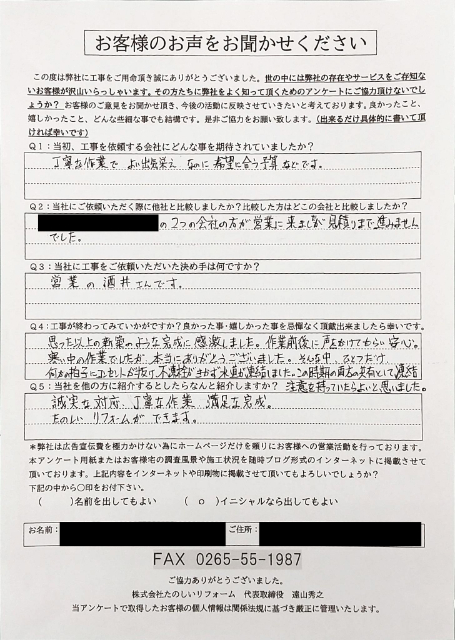 お客様のお声をお聞かせください
この度は弊社に工事をご用命頂き誠にありがとうございました。世の中には弊社の存在やサービスをご存知ない
お客様が沢山いらっしゃいます。その方たちに弊社をよく知って頂くためのアンケートにご協力頂けないでし
ょうか？お客様のご意見をお聞かせ頂き、今後の活動に反映させていきたいと考えております。良かったこと、
嬉しかったこと、どんな些細な事でも結構です。是非ご協力をお願い致します。(出来るだけ具体的に書いて頂
ければ幸いです)
Q1：当初、工事を依頼する会社にどんな事を期待されていましたか？
丁寧な作業で よい出来栄え なのに 希望に合う予算などです。
Q2：当社にご依頼いただく際に他社と比較しましたか？比較した方はどこの会社と比較しましたか？
の2つの会社の方が営業に来ましたが 見積りまで進みません
でした。
Q3：当社に工事をご依頼いただいた決め手は何ですか？
営業の酒井さんです。
Q4：工事が終わってみていかがですか？良かった事・嬉しかった事を忌憚なく頂戴出来ましたら幸いです。
思った以上の新築のような完成に感激しました。作業前後に声をかけてもらい安心。
寒い中の作業でしたが、本当にありがとうございました。そんな中、ひとつだけ、
何かの拍子にコンセントが抜け、不凍栓がきかず水道が凍結しました。この時期の両者の共有いして凍結
Q5：当社を他の方に紹介するとしたらなんと紹介しますか？ 注意を持っていたらよいと思いました。
誠実な対応、丁寧な作業、満足な完成。
たのしいリフォームができます。
＊弊社は広告宣伝費を極力かけない為にホームページだけを頼りにお客様への営業活動を行っております。
本アンケート用紙またはお客様宅の調査風景や施工状況を随時ブログ形式のインターネットに掲載させて
頂いております。上記内容をインターネットや印刷物に掲載させて頂いてもよろしいでしょうか？
下記の中から○印をお付下さい。
（　　）名前を出してもよい　　（ ○ ）イニシャルなら出してもよい
お名前： ご住所：
FAX 0265-55-1987
ご協力ありがとうございました。
株式会社たのしいリフォーム　代表取締役　遠山秀之
当アンケートで取得したお客様の個人情報は関係法規に基づき厳正に管理いたします。